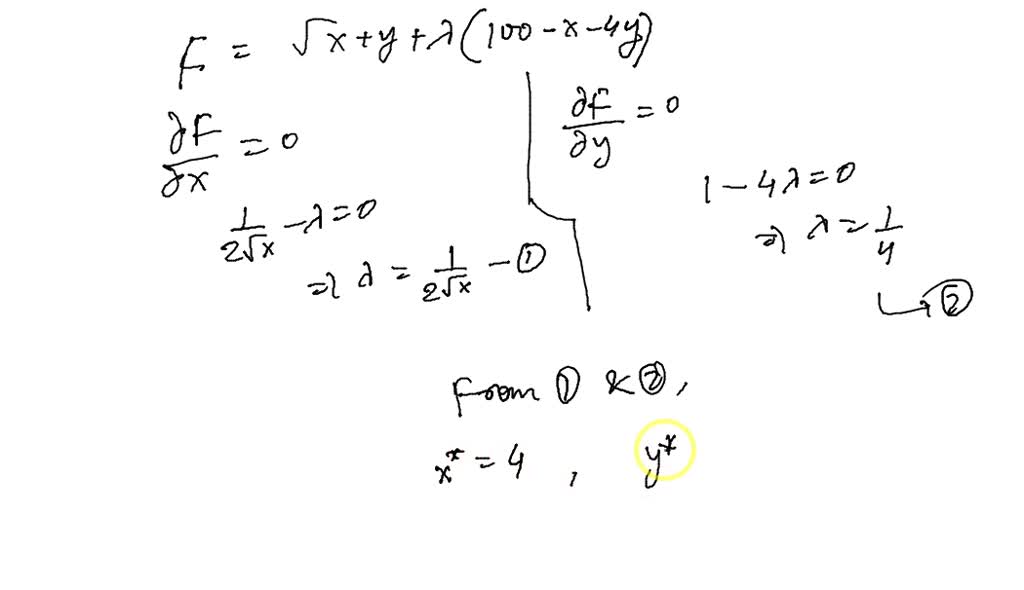 F = √x + y + λ(100 - x - 4y)
∂F/∂x = 0
1/2√x - λ = 0
⇒ λ = 1/2√x - ①
∂F/∂y = 0
1 - 4λ = 0
⇒ λ = 1/4
↳ ②
From ① & ②,
x* = 4 , y*